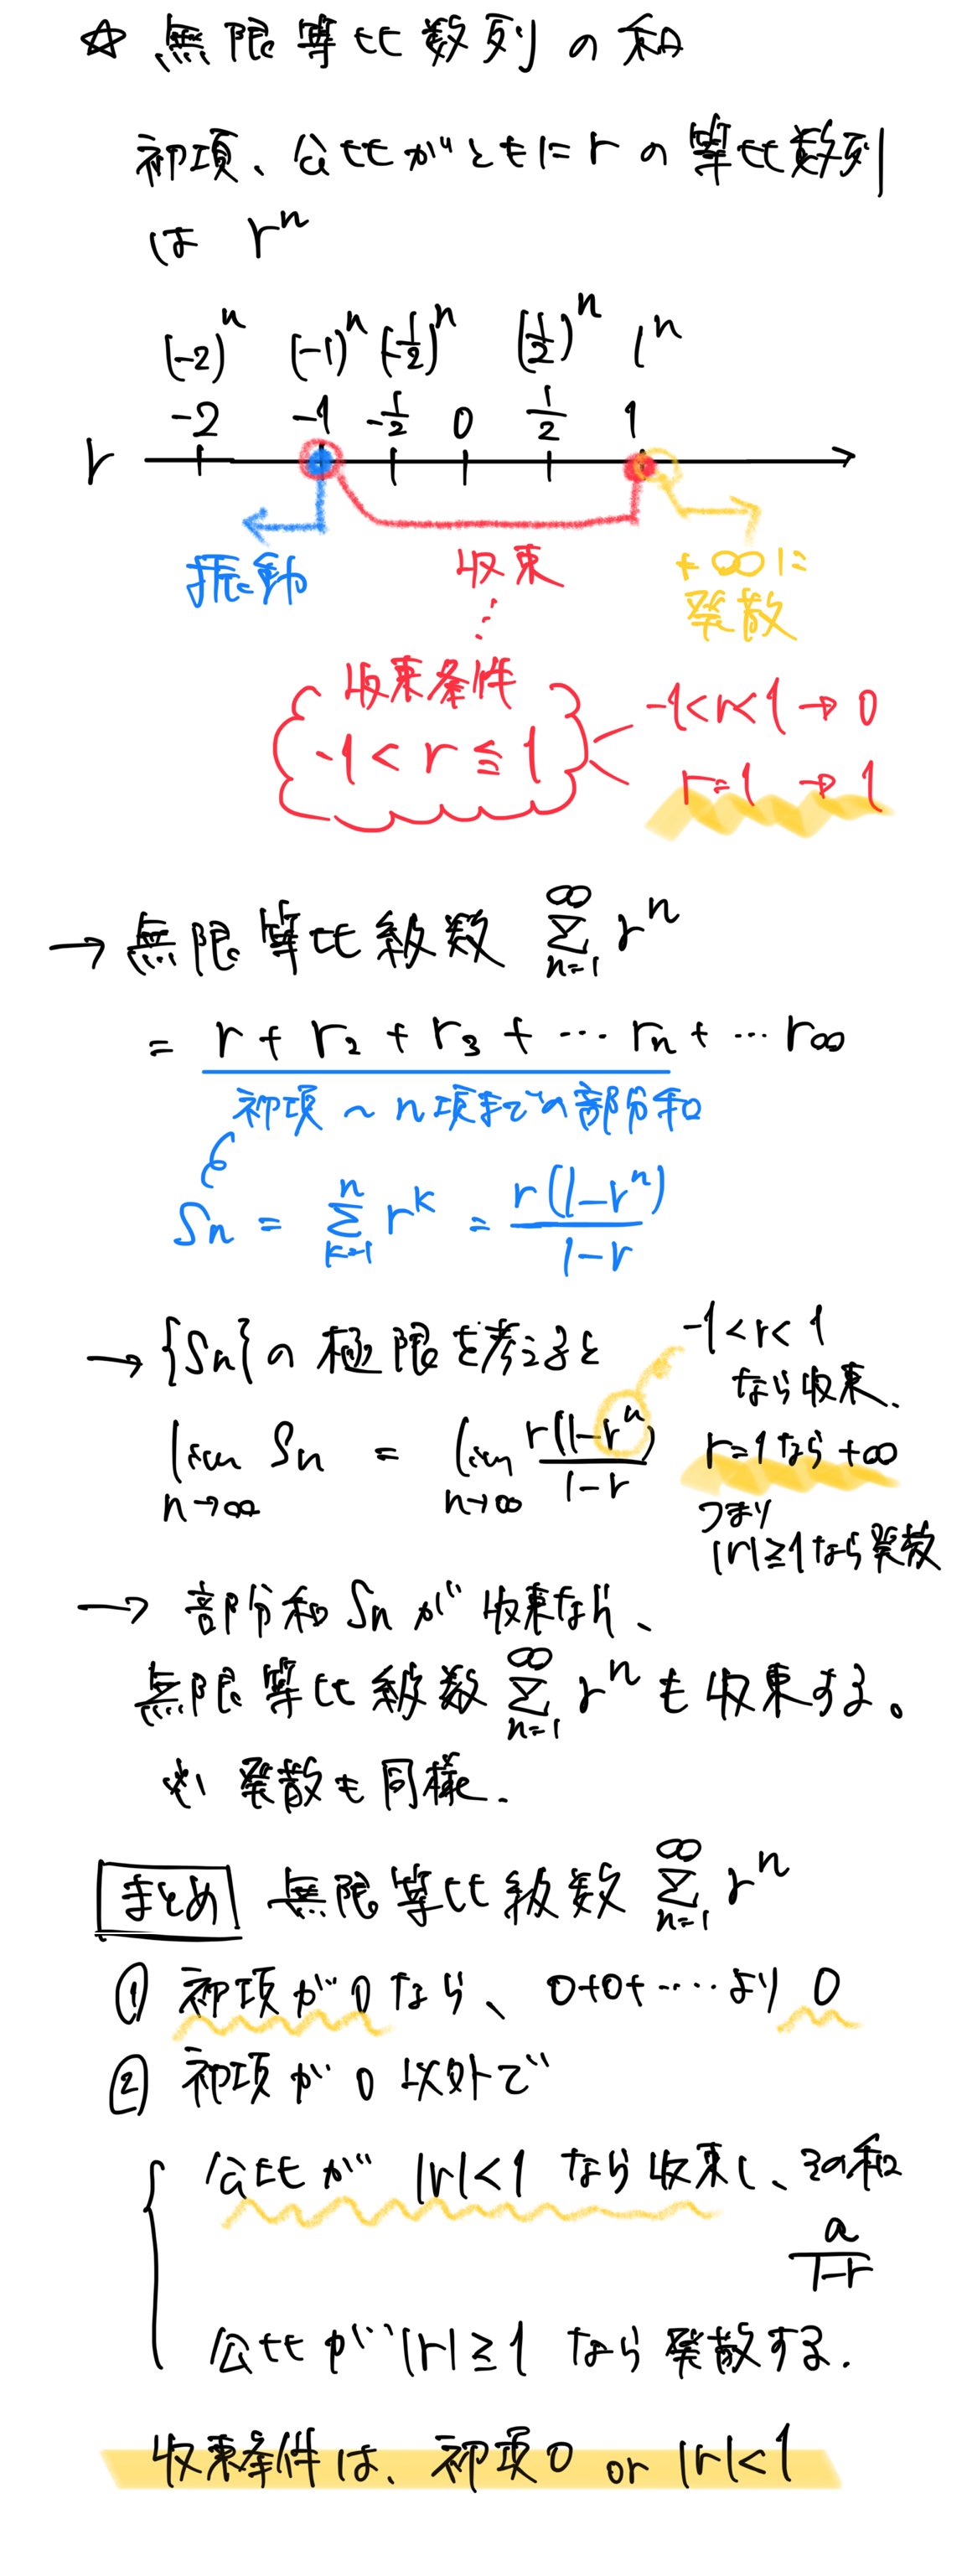 ☆ 無限等比数列の和
初項、公比がともにrの等比数列
は rⁿ
(-2)ⁿ (-1)ⁿ (-1/2)ⁿ (1/2)ⁿ 1ⁿ
-2 -1 -1/2 0 1/2 1
r
振動 収束 +∞に
発散
収束条件
-1<r≦1
-1<r<1 → 0
r=1 → 1
→ 無限等比級数 ∑_{n=1}^{∞} rⁿ
= r + r₂ + r₃ + … rₙ + … r∞
初項 〜 n項までの部分和
Sn = ∑_{k=1}^{n} r^k = r(1-rⁿ)/(1-r)
→ {Sn}の極限を考えると
lim_{n→∞} Sn = lim_{n→∞} r(1-rⁿ)/(1-r)
-1<r<1
なら収束.
r=1なら+∞
つまり
|r|≧1なら発散
→ 部分和Snが収束なら、
無限等比級数 ∑_{n=1}^{∞} rⁿ も収束する。
※ 発散も同様.
まとめ 無限等比級数 ∑_{n=1}^{∞} rⁿ
① 初項が0なら、0+0+……より 0
② 初項が0以外で
公比が |r|<1 なら収束し、その和
a/(1-r)
公比が |r|≧1 なら発散する.
収束条件は、初項0 or |r|<1